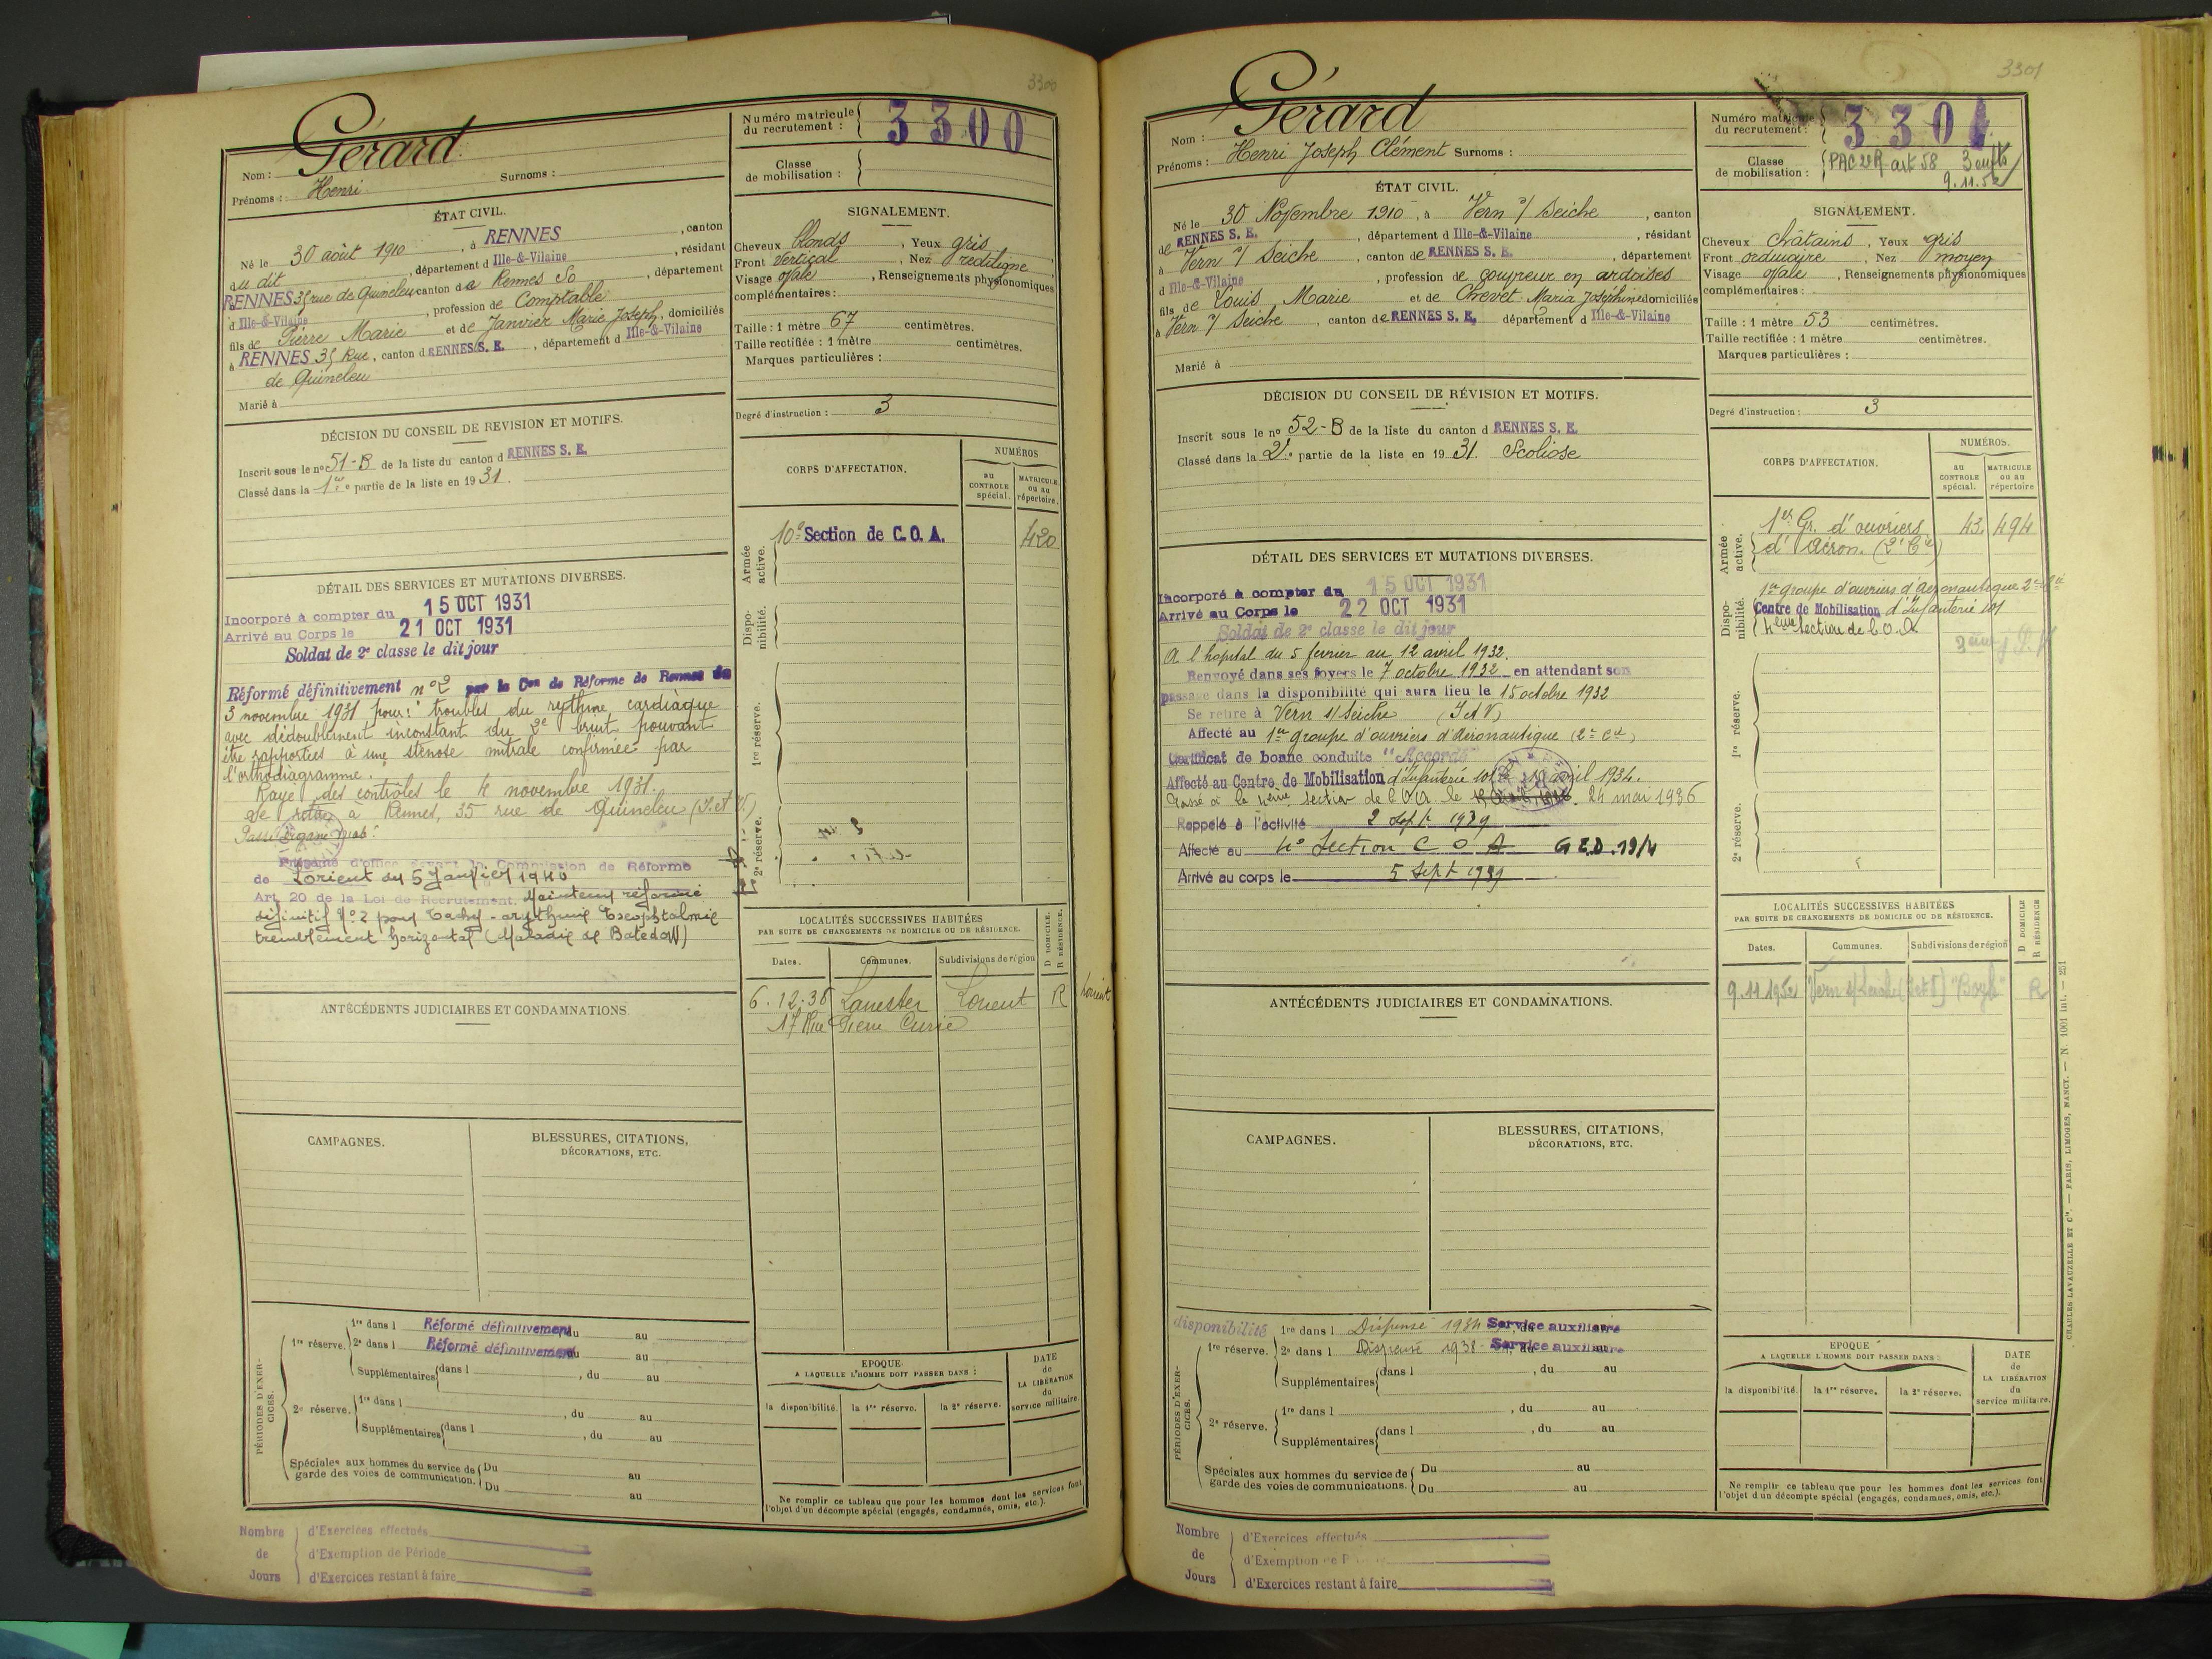 3300
Nom : Gérard
Prénoms : Henri Surnoms :
Numéro matricule du recrutement : 3300
Classe de mobilisation :
ÉTAT CIVIL.
Né le 30 août 1910, à RENNES, canton
du dit, département d Ille-&-Vilaine, résidant
à RENNES 35 rue de Quineleu canton de Rennes So, département
d Ille-&-Vilaine, profession de Comptable
fils de Pierre Marie et de Janvier Marie Joseph, domiciliés
à RENNES 35 Rue, canton d RENNES S. E., département d Ille-&-Vilaine
de Quineleu
Marié à
SIGNALEMENT.
Cheveux blonds, Yeux gris
Front vertical, Nez rectiligne
Visage ovale, Renseignements physionomiques
complémentaires :
Taille : 1 mètre 67 centimètres.
Taille rectifiée : 1 mètre centimètres.
Marques particulières :
Degré d'instruction : 3
DÉCISION DU CONSEIL DE RÉVISION ET MOTIFS.
Inscrit sous le nº 51-B de la liste du canton d RENNES S. E.
Classé dans la 1re partie de la liste en 1931.
CORPS D'AFFECTATION.
NUMÉROS
au CONTROLE spécial.
MATRICULE ou au répertoire.
Armée active.
10e Section de C. O. A. 420
Disponibilité.
1re réserve.
2e réserve.
DÉTAIL DES SERVICES ET MUTATIONS DIVERSES.
Incorporé à compter du 15 OCT 1931
Arrivé au Corps le 21 OCT 1931
Soldat de 2e classe le dit jour
Réformé définitivement nº 2 par la Con de Réforme de Rennes du
3 novembre 1931 pour : troubles du rythme cardiaque
avec dédoublement inconstant du 2e bruit pouvant
être rapportées à une sténose mitrale confirmée par
l'orthodiagramme.
Rayé des contrôles le 4 novembre 1931.
Se retire à Rennes, 35 rue de Quineleu (I. et V.)
Présenté d'office devant la Commission de Réforme
de Lorient du 5 Janvier 1940
Art. 20 de la Loi de Recrutement. Maintenu réformé
définitif Nº 2 pour Tachy-arythmie Exophtalmie
tremblement horizontal (Maladie de Batedow)
LOCALITÉS SUCCESSIVES HABITÉES
PAR SUITE DE CHANGEMENTS DE DOMICILE OU DE RÉSIDENCE.
Dates. Communes. Subdivisions de région D DOMICILE. R RÉSIDENCE.
6.12.38 Lanester Lorient R Lorient
17 Rue Pierre Curie
ANTÉCÉDENTS JUDICIAIRES ET CONDAMNATIONS.
CAMPAGNES.
BLESSURES, CITATIONS, DÉCORATIONS, ETC.
PÉRIODES D'EXERCICES.
1re réserve. 1re dans l Réformé définitivement du au
2e dans l Réformé définitivement du au
Supplémentaires dans l, du au
2e réserve. 1re dans l, du au
Supplémentaires dans l, du au
Spéciales aux hommes du service de garde des voies de communication. Du au
Du au
EPOQUE A LAQUELLE L'HOMME DOIT PASSER DANS :
la disponibilité. la 1re réserve. la 2e réserve.
DATE de LA LIBÉRATION du service militaire.
Ne remplir ce tableau que pour les hommes dont les services font
l'objet d'un décompte spécial (engagés, condamnés, omis, etc.).
Nombre de Jours
d'Exercices effectués
d'Exemption de Période
d'Exercices restant à faire
3301
Nom : Gérard
Prénoms : Henri Joseph Clément Surnoms :
Numéro matricule du recrutement : 3301
Classe de mobilisation : PAC 2eR art 58 3 enfts
9.11.52
ÉTAT CIVIL.
Né le 30 Novembre 1910, à Vern s/ Seiche, canton
de RENNES S. E., département d Ille-&-Vilaine, résidant
à Vern s/ Seiche, canton de RENNES S. E., département
d Ille-&-Vilaine, profession de couvreur en ardoises
fils de Louis Marie et de Chevet Maria Joséphine domiciliés
à Vern s/ Seiche, canton de RENNES S. E., département d Ille-&-Vilaine
Marié à
SIGNALEMENT.
Cheveux châtains, Yeux gris
Front ordinaire, Nez moyen
Visage ovale, Renseignements physionomiques
complémentaires :
Taille : 1 mètre 53 centimètres.
Taille rectifiée : 1 mètre centimètres.
Marques particulières :
Degré d'instruction : 3
DÉCISION DU CONSEIL DE RÉVISION ET MOTIFS.
Inscrit sous le nº 52-B de la liste du canton d RENNES S. E.
Classé dans la 2e partie de la liste en 1931. Scoliose
CORPS D'AFFECTATION.
NUMÉROS.
au CONTROLE spécial.
MATRICULE ou au répertoire
Armée active.
1er Gr. d'ouvriers 43. 494
d'Aéron. (2e Cie)
Disponibilité.
1er groupe d'ouvriers d'Aéronautique 2e Cie
Centre de Mobilisation d'Infanterie 101
4ème Section de C.O.A
1re réserve.
2e réserve.
DÉTAIL DES SERVICES ET MUTATIONS DIVERSES.
Incorporé à compter du 15 OCT 1931
Arrivé au Corps le 22 OCT 1931
Soldat de 2e classe le dit jour
A l'hopital du 5 fevrier au 12 avril 1932.
Renvoyé dans ses foyers le 7 octobre 1932 en attendant son
passage dans la disponibilité qui aura lieu le 15 octobre 1932
Se retire à Vern s/ Seiche (I et V)
Affecté au 1er groupe d'ouvriers d'Aéronautique (2e Cie)
Certificat de bonne conduite "Accordé"
Affecté au Centre de Mobilisation d'Infanterie 101 le avril 1934.
Passé à la 4ème section de C.O.A. le 24 mai 1936
Rappelé à l'activité 2 Sept 1939
Affecté au 4e Section C O A G.E.D. 19/4
Arrivé au corps le 5 Sept 1939
LOCALITÉS SUCCESSIVES HABITÉES
PAR SUITE DE CHANGEMENTS DE DOMICILE OU DE RÉSIDENCE.
Dates. Communes. Subdivisions de région D DOMICILE R RÉSIDENCE
9.11.1952 Vern s/ Seiche (I et V) R
ANTÉCÉDENTS JUDICIAIRES ET CONDAMNATIONS.
CAMPAGNES.
BLESSURES, CITATIONS, DÉCORATIONS, ETC.
PÉRIODES D'EXERCICES.
disponibilité 1re dans l Dispensé 1934 Service auxiliaire
1re réserve. 2e dans l Dispensé 1938 Service auxiliaire
Supplémentaires dans l, du au
2e réserve. 1re dans l, du au
Supplémentaires dans l, du au
Spéciales aux hommes du service de garde des voies de communications. Du au
Du au
EPOQUE A LAQUELLE L'HOMME DOIT PASSER DANS :
la disponibilité. la 1re réserve. la 2e réserve.
DATE de LA LIBÉRATION du service militaire.
Ne remplir ce tableau que pour les hommes dont les services font
l'objet d'un décompte spécial (engagés, condamnés, omis, etc.).
Nombre de Jours
d'Exercices effectués
d'Exemption de P
d'Exercices restant à faire
CHARLES LAVAUZELLE ET Cie. — PARIS, LIMOGES, NANCY. — N 1001 int. — 231